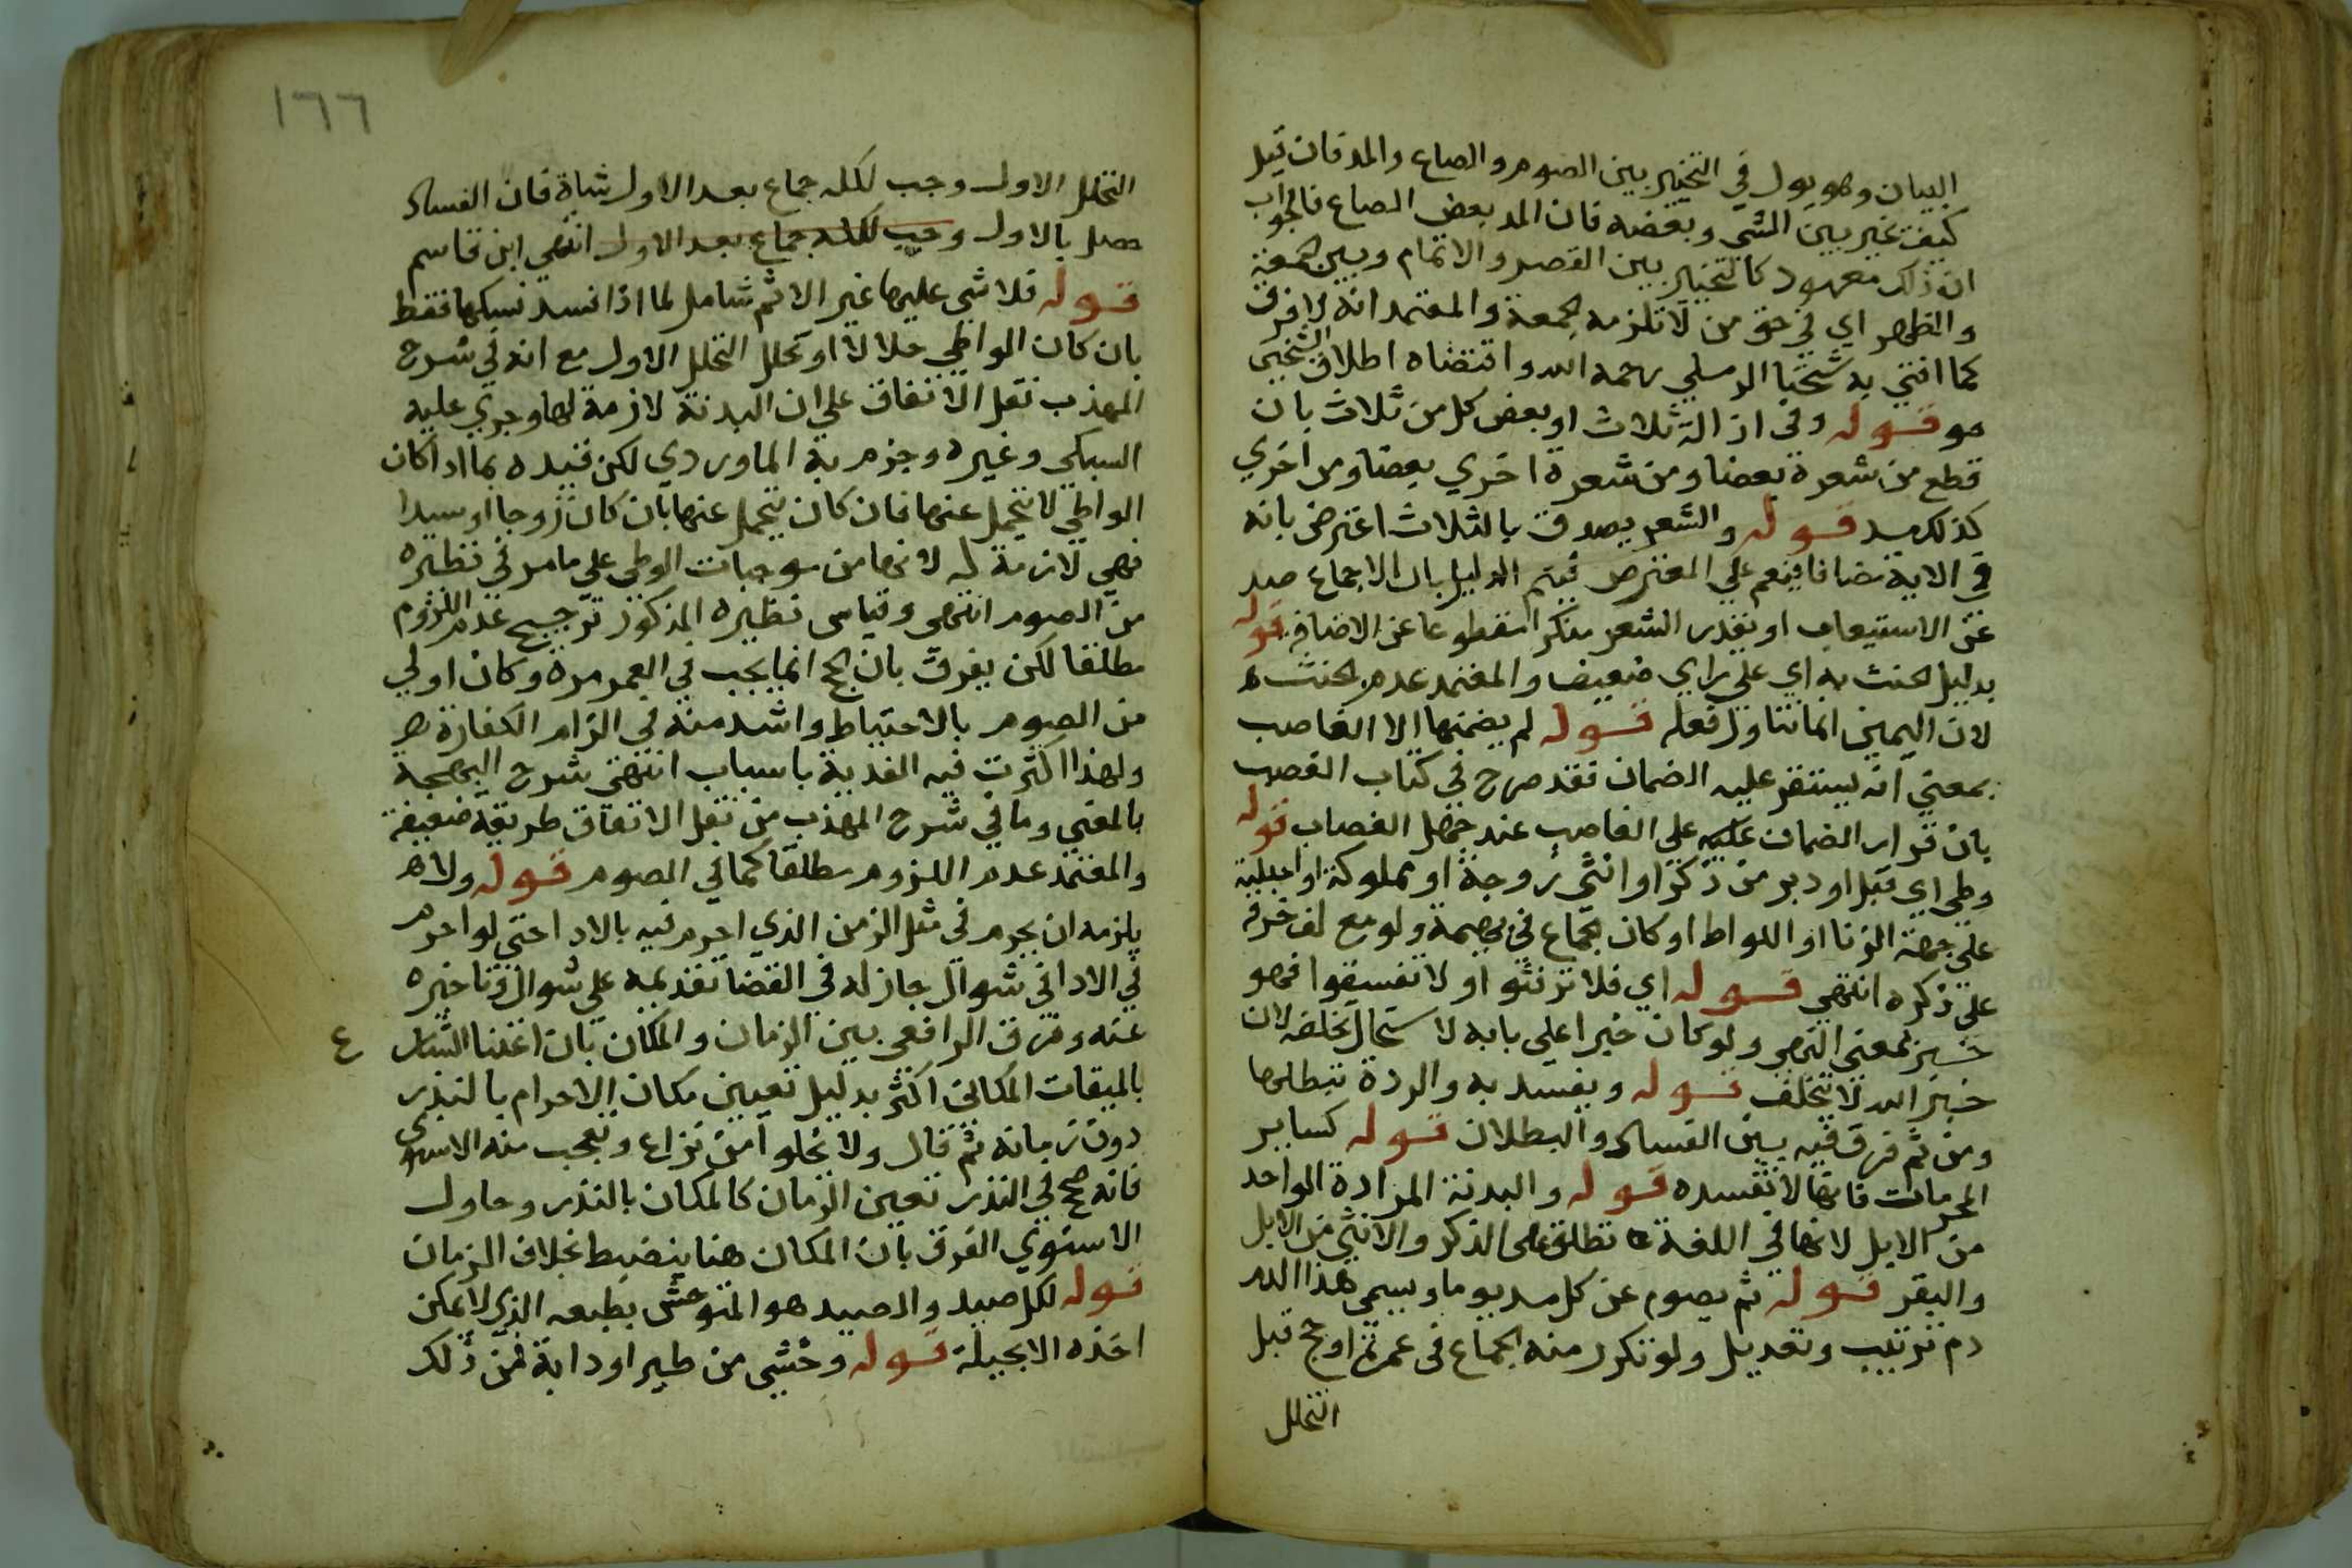 البيان وهو يول في التخيير بين الصوم والصاع والمد فان قيل
كيف تخير بين الشي وبعضه فان المد بعض الصاع فالجواب
ان ذلك معهود كالتخيير بين القصر والاتمام وبين الجمعة
والظهر اي في حق من لا تلزمه الجمعة والمعتمد انه لا فرق
كما افتي به شيخنا الرملي رحمه الله واقتضاه اطلاق الشيخين
قوله وفي ازالة ثلاث او بعض كل من ثلاث بان
قطع من شعرة بعضا ومن شعرة اخري بعضا ومن اخري
كذلك قوله والشعر يصدق بالثلاث اعترض بانه
في الاية مضافا فيعم علي المعترض فيتم الدليل بان الاجماع صد
عن الاستيعاب او نقدر الشعر منكرا مقطوعا عن الاضافة قوله
بدليل الحنث به اي علي راي ضعيف والمعتمد عدم الحنث
لان اليمين انما تتناول فعله قوله لم يضمنها الا الغاصب
بمعني انه يستقر عليه الضمان فقد صرح في كتاب الغصب
بان قرار الضمان عليه علي الغاصب عند جهل الغصاب قوله
وطي اي قبل او دبر من ذكر او انثي زوجة او مملوكة او اجنبية
علي جهة الزنا او اللواط او كان جماع في بهيمة ولو مع لف خرقة
علي ذكره انتهي قوله اي فلا ترفثوا ولا تفسقوا فهو
خبر بمعني النهي ولو كان خبرا علي بابه لاستحال تخلفه لان
خبر الله لا يتخلف قوله ويفسد به والردة تبطلها
ومن ثم فرق فيه بين الفساد والبطلان قوله كساير
المحرمات فانها لا تفسده قوله والبدنة المرادة الواحد
من الابل لانها في اللغة تطلق علي الذكر والانثي من الابل
والبقر قوله ثم يصوم عن كل مد يوما ويسمي هذا الدم
دم ترتيب وتعديل ولو تكرر منه الجماع في عمرة او حج قبل
التحلل
١٦٦
التحلل الاول وجب لكل جماع بعد الاول شاة فان الفساد
حصل بالاول وجب لكل جماع بعد الاول انتهي ابن قاسم
قوله فلا شي عليها غير الاثم شامل لما اذا فسد نسكها فقط
بان كان الواطي حلالا او تحلل التحلل الاول مع انه في شرح
المهذب نقل الاتفاق علي ان البدنة لازمة لها وجري عليه
السبكي وغيره وجزم به الماوردي لكن قيده بما اذا كان
الواطي لا يتحمل عنها فان كان يتحمل عنها بان كان زوجا او سيدا
فهي لازمة له لانها من موجبات الوطي علي ما مر في نظيره
من الصوم انتهي وقياس نظيره المذكور ترجيح عدم اللزوم
مطلقا لكن يفرق بان الحج انما يجب في العمر مرة وكان اولي
من الصوم بالاحتياط واشد منه في الزام الكفارة
ولهذا اكثرت فيه الفدية باسباب انتهي شرح البهجة
بالمعني وما في شرح المهذب من نقل الاتفاق طريقة ضعيفة
والمعتمد عدم اللزوم مطلقا كما في الصوم قوله ولا
يلزمه ان يحرم في مثل الزمن الذي احرم فيه بالادا حتي لو احرم
في الادا في شوال جاز له في القضا تقديمه علي شوال وتاخيره
عنه وفرق الرافعي بين الزمان والمكان بان اعتنا الشارع
بالميقات المكاني اكثر بدليل تعيين مكان الاحرام بالنذر
دون زمانه ثم قال ولا يخلو امن نزاع وتعجب منه الاسنوي
فانه صحح في النذر تعين الزمان كالمكان بالنذر وحاول
الاسنوي الفرق بان المكان هنا ينضبط بخلاف الزمان
قوله لكل صيد والصيد هو المتوحش بطبعه الذي لا يمكن
اخذه الا بحيلة قوله وحشي من طير او دابة فمن ذلك